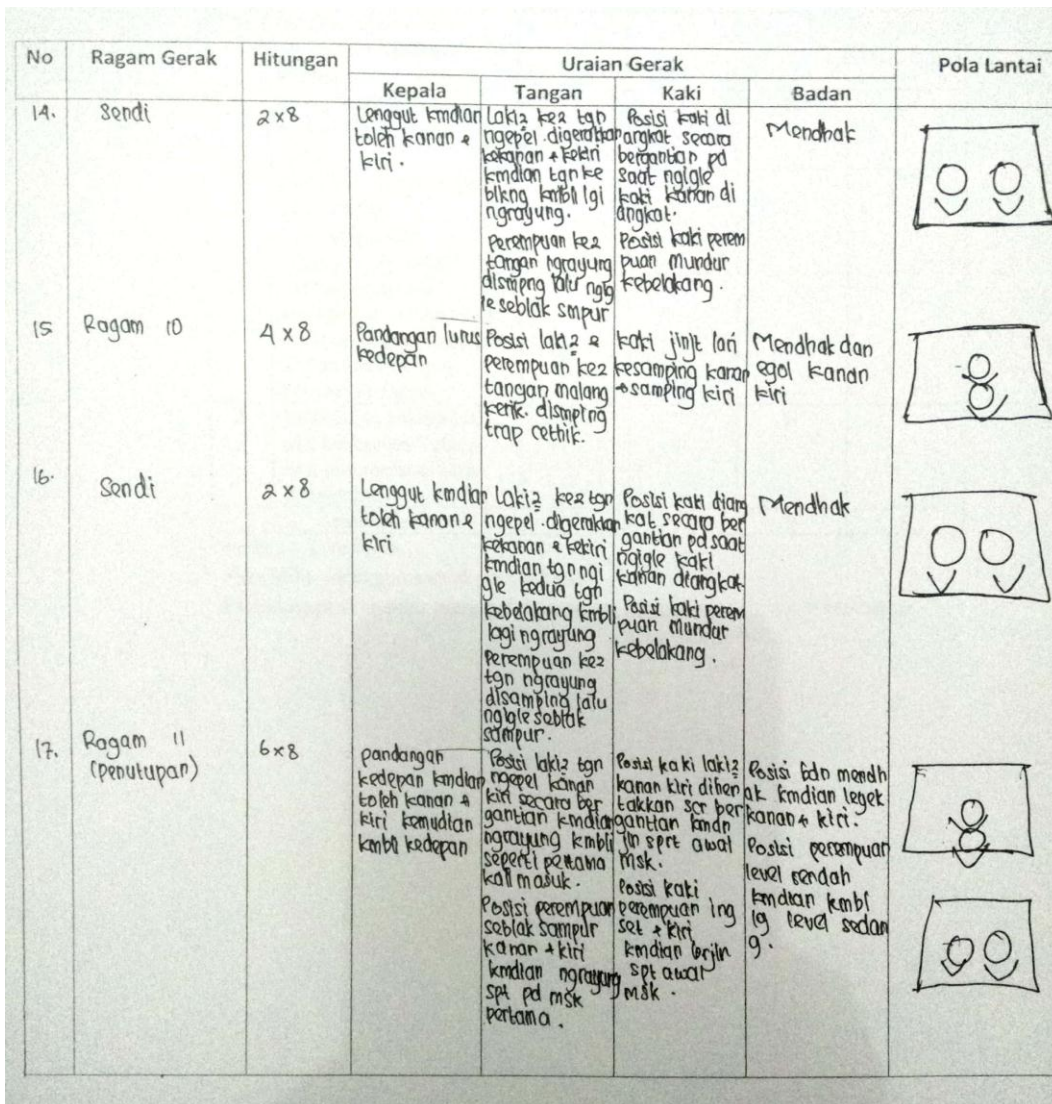 No
Ragam Gerak
Hitungan
Uraian Gerak
Pola Lantai
Kepala
Tangan
Kaki
Badan
14.
Sendi
2x8
Lenggut kmdian
toleh kanan &
kiri.
Laki2 ke2 tgn
ngepel. digerakkan
kekanan + kekiri
kmdian tgn ke
blkng kmbli lgi
ngrayung.
Perempuan ke2
tangan ngrayung
dismpng lalu ngig
le seblak smpur
Posisi kaki di
angkat secara
bergantian pd
saat ngigle
kaki kanan di
angkat.
Posisi kaki perem
puan mundur
kebelakang.
Mendhak
15
Ragam 10
4x8
Pandangan lurus
kedepan
Posisi laki2 &
perempuan ke2
tangan malang
kerik. dismping
trap cethik.
kaki jinjt lari
kesamping kanan
+ samping kiri
Mendhak dan
egol kanan
kiri
16.
Sendi
2x8
Lenggut kmdian
toleh kanan &
kiri
Laki2 ke2 tgn
ngepel. digerakkan
kekanan & kekiri
kmdian tgn ngi
gle kedua tgn
kebelakang kmbli
lagi ngrayung
Perempuan ke2
tgn ngrayung
disamping lalu
ngigle seblak
sampur.
Posisi kaki diang
kat secara ber
gantian pd saat
ngigle kaki
kanan diangkat.
Posisi kaki perem
puan mundur
kebelakang.
Mendhak
17.
Ragam 11
(penutupan)
6x8
pandangan
kedepan kmdian
toleh kanan &
kiri kemudian
kmbli kedepan
Posisi laki2 tgn
ngepel kanan
kiri secara ber
gantian kmdian
ngrayung kmbli
seperti pertama
kali masuk.
Posisi perempuan
seblak sampur
kanan + kiri
kmdian ngrayung
spt pd msk
pertama.
Posisi kaki laki2
kanan kiri dihen
takkan scr ber
gantian kmdn
jln sprt awal
msk.
Posisi kaki
perempuan ing
set + kiri
kmdian brjln
spt awal
msk.
Posisi bdn mendh
ak kmdian legek
kanan + kiri.
Posisi perempuan
level rendah
kmdian kmbl
lg level sedan
g.